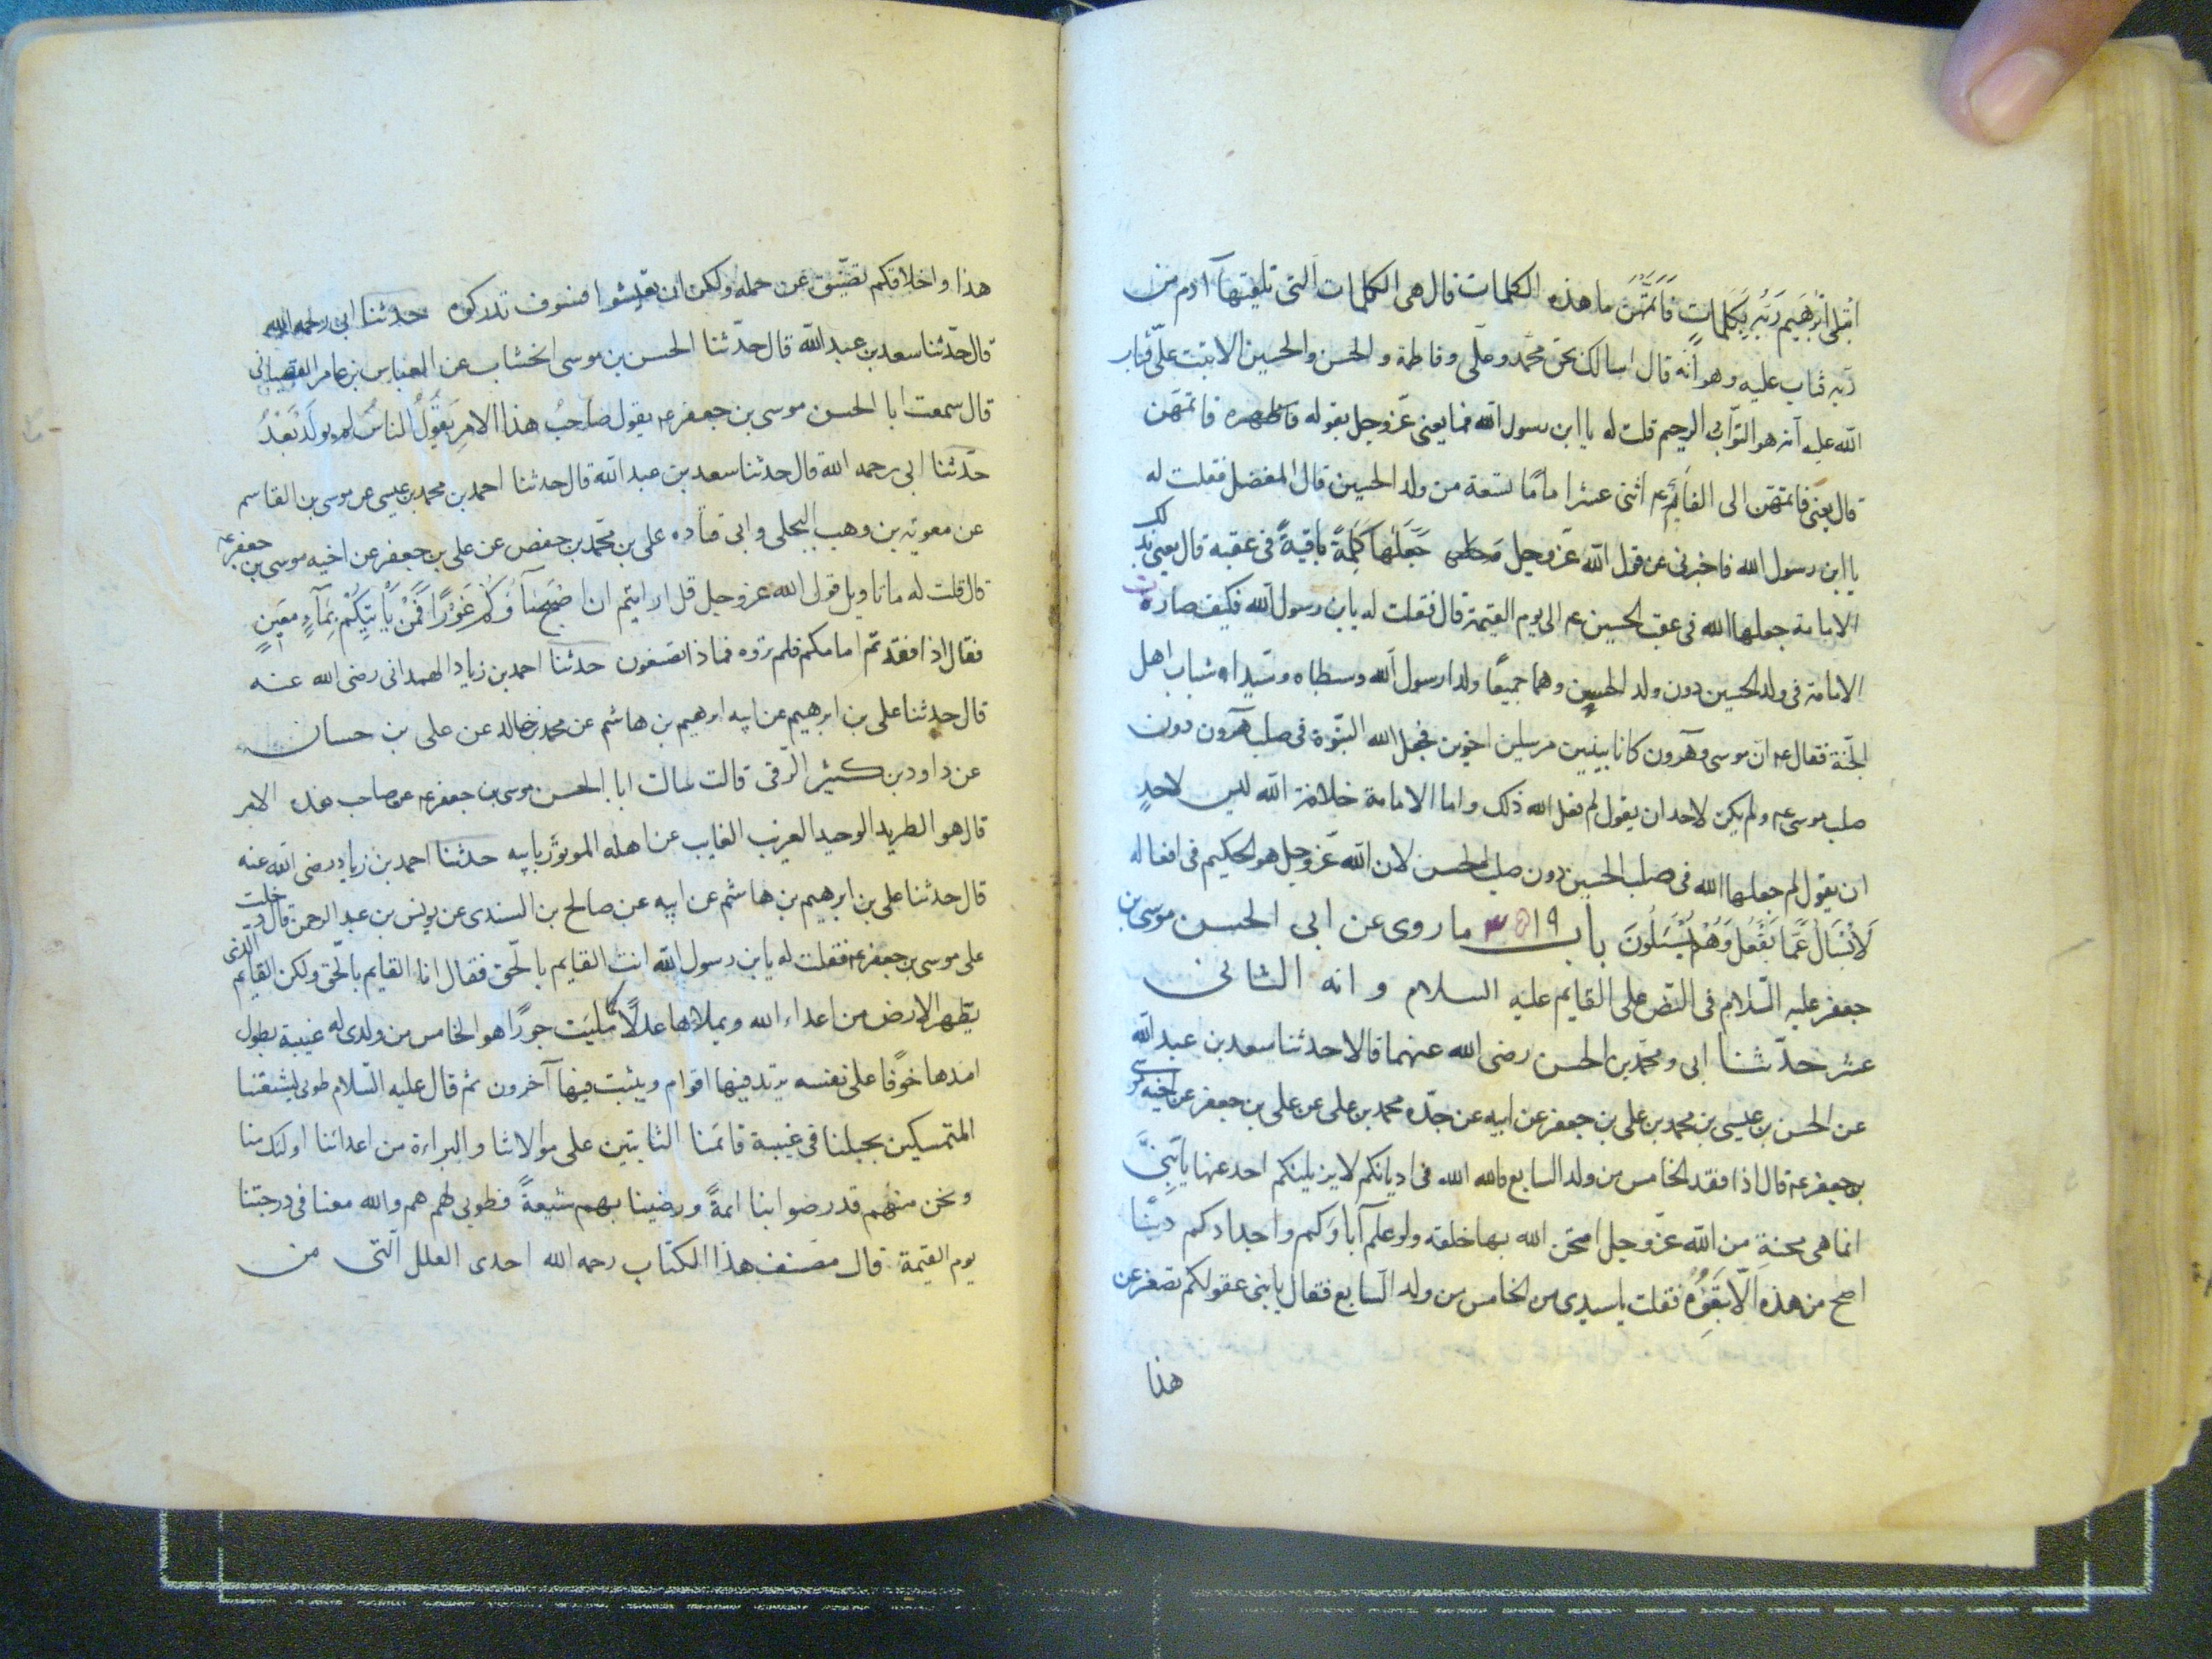 ابتلى ابرهيم ربه بكلمات فاتمهن ما هذه الكلمات قال هى الكلمات التى تلقيها آدم من
ربه فتاب عليه وهو انه قال اسالك بحق محمد وعلى وفاطمة والحسن والحسين الا تبت علىّ فتاب
الله عليه انه هو التواب الرحيم قلت له يا ابن رسول الله فما يعنى عز وجل بقوله فاتمهن
قال يعنى فاتمهن الى القايم عم اثنى عشر اماما تسعة من ولد الحسين قال المفضل فقلت له
يا ابن رسول الله فاخبرنى عن قول الله عز وجل جعلها كلمة باقية فى عقبه قال يعنى بذلك
الامامة جعلها الله فى عقب الحسين عم الى يوم القيمة قال فقلت له يابن رسول الله فكيف صارت
الامامة فى ولد الحسين دون ولد الحسن وهما جميعا ولدا رسول الله وسبطاه وسيدا شباب اهل
الجنة فقال عم ان موسى وهرون كانا نبيين مرسلين اخوين فجعل الله النبوة فى صلب هرون دون
صلب موسى عم ولم يكن لاحد ان يقول لم فعل الله ذلك واما الامامة خلافة الله ليس لاحد
ان يقول لم جعلها الله فى صلب الحسين دون صلب الحسن لان الله عز وجل هو الحكيم فى افعاله
لا يسال عما يفعل وهم يسئلون باب ما روى عن ابى الحسن موسى بن
جعفر عليه السلام فى النص على القايم عليه السلام وانه الثانى
عشر حدثنا ابى ومحمد بن الحسن رضى الله عنهما قالا حدثنا سعد بن عبد الله
عن الحسن بن عيسى بن محمد بن على بن جعفر عن ابيه عن جده محمد بن على عن على بن جعفر عن اخيه موسى
بن جعفر عم قال اذا فقد الخامس من ولد السابع فالله الله فى اديانكم لا يزيلنكم احد عنها يا بنى
انما هى محنة من الله عز وجل امتحن الله بها خلقه ولو علم آباؤكم واجدادكم دينا
اصح من هذه لاتبعوه فقلت يا سيدى من الخامس من ولد السابع فقال يا بنى عقولكم تصغر عن
هذا
هذا واخلاقكم تضيق عن حمله ولكن ان تعيشوا فسوف تدركوه حدثنا ابى رحمه الله
قال حدثنا سعد بن عبد الله قال حدثنا الحسن بن موسى الخشاب عن العباس بن عامر القصبانى
قال سمعت ابا الحسن موسى بن جعفر عم يقول صاحب هذا الامر يقول الناس لم يولد بعد
حدثنا ابى رحمه الله قال حدثنا سعد بن عبد الله قال حدثنا احمد بن محمد بن عيسى عن موسى بن القاسم
عن معوية بن وهب البجلى وابى قتاده على بن محمد بن حفص عن على بن جعفر عن اخيه موسى بن جعفر عم
قال قلت له ما تاويل قول الله عز وجل قل ارايتم ان اصبح ماؤكم غورا فمن ياتيكم بماء معين
فقال اذا فقدتم امامكم فلم تروه فماذا تصنعون حدثنا احمد بن زياد الهمدانى رضى الله عنه
قال حدثنا على بن ابرهيم عن ابيه ابرهيم بن هاشم عن محمد بن خالد عن على بن حسان
عن داود بن كثير الرقى قالت سالت ابا الحسن موسى بن جعفر عم عن صاحب هذه الامر
قال هو الطريد الوحيد الغريب الغايب عن اهله الموتور بابيه حدثنا احمد بن زياد رضى الله عنه
قال حدثنا على بن ابرهيم بن هاشم عن ابيه عن صالح بن السندى عن يونس بن عبد الرحمن قال دخلت
على موسى بن جعفر عم فقلت له يابن رسول الله انت القايم بالحق فقال انا القايم بالحق ولكن القايم الذى
يطهر الارض من اعداء الله ويملاها عدلا كما مليت جورا هو الخامس من ولدى له غيبة يطول
امدها خوفا على نفسه يرتد فيها اقوام ويثبت فيها آخرون ثم قال عليه السلام طوبى لشيعتنا
المتمسكين بحبلنا فى غيبة قائمنا الثابتين على موالاتنا والبراءة من اعدائنا اولئك منا
ونحن منهم قد رضوا بنا ائمة ورضينا بهم شيعة فطوبى لهم هم والله معنا فى درجتنا
يوم القيمة قال مصنف هذا الكتاب رحمه الله احدى العلل التى من